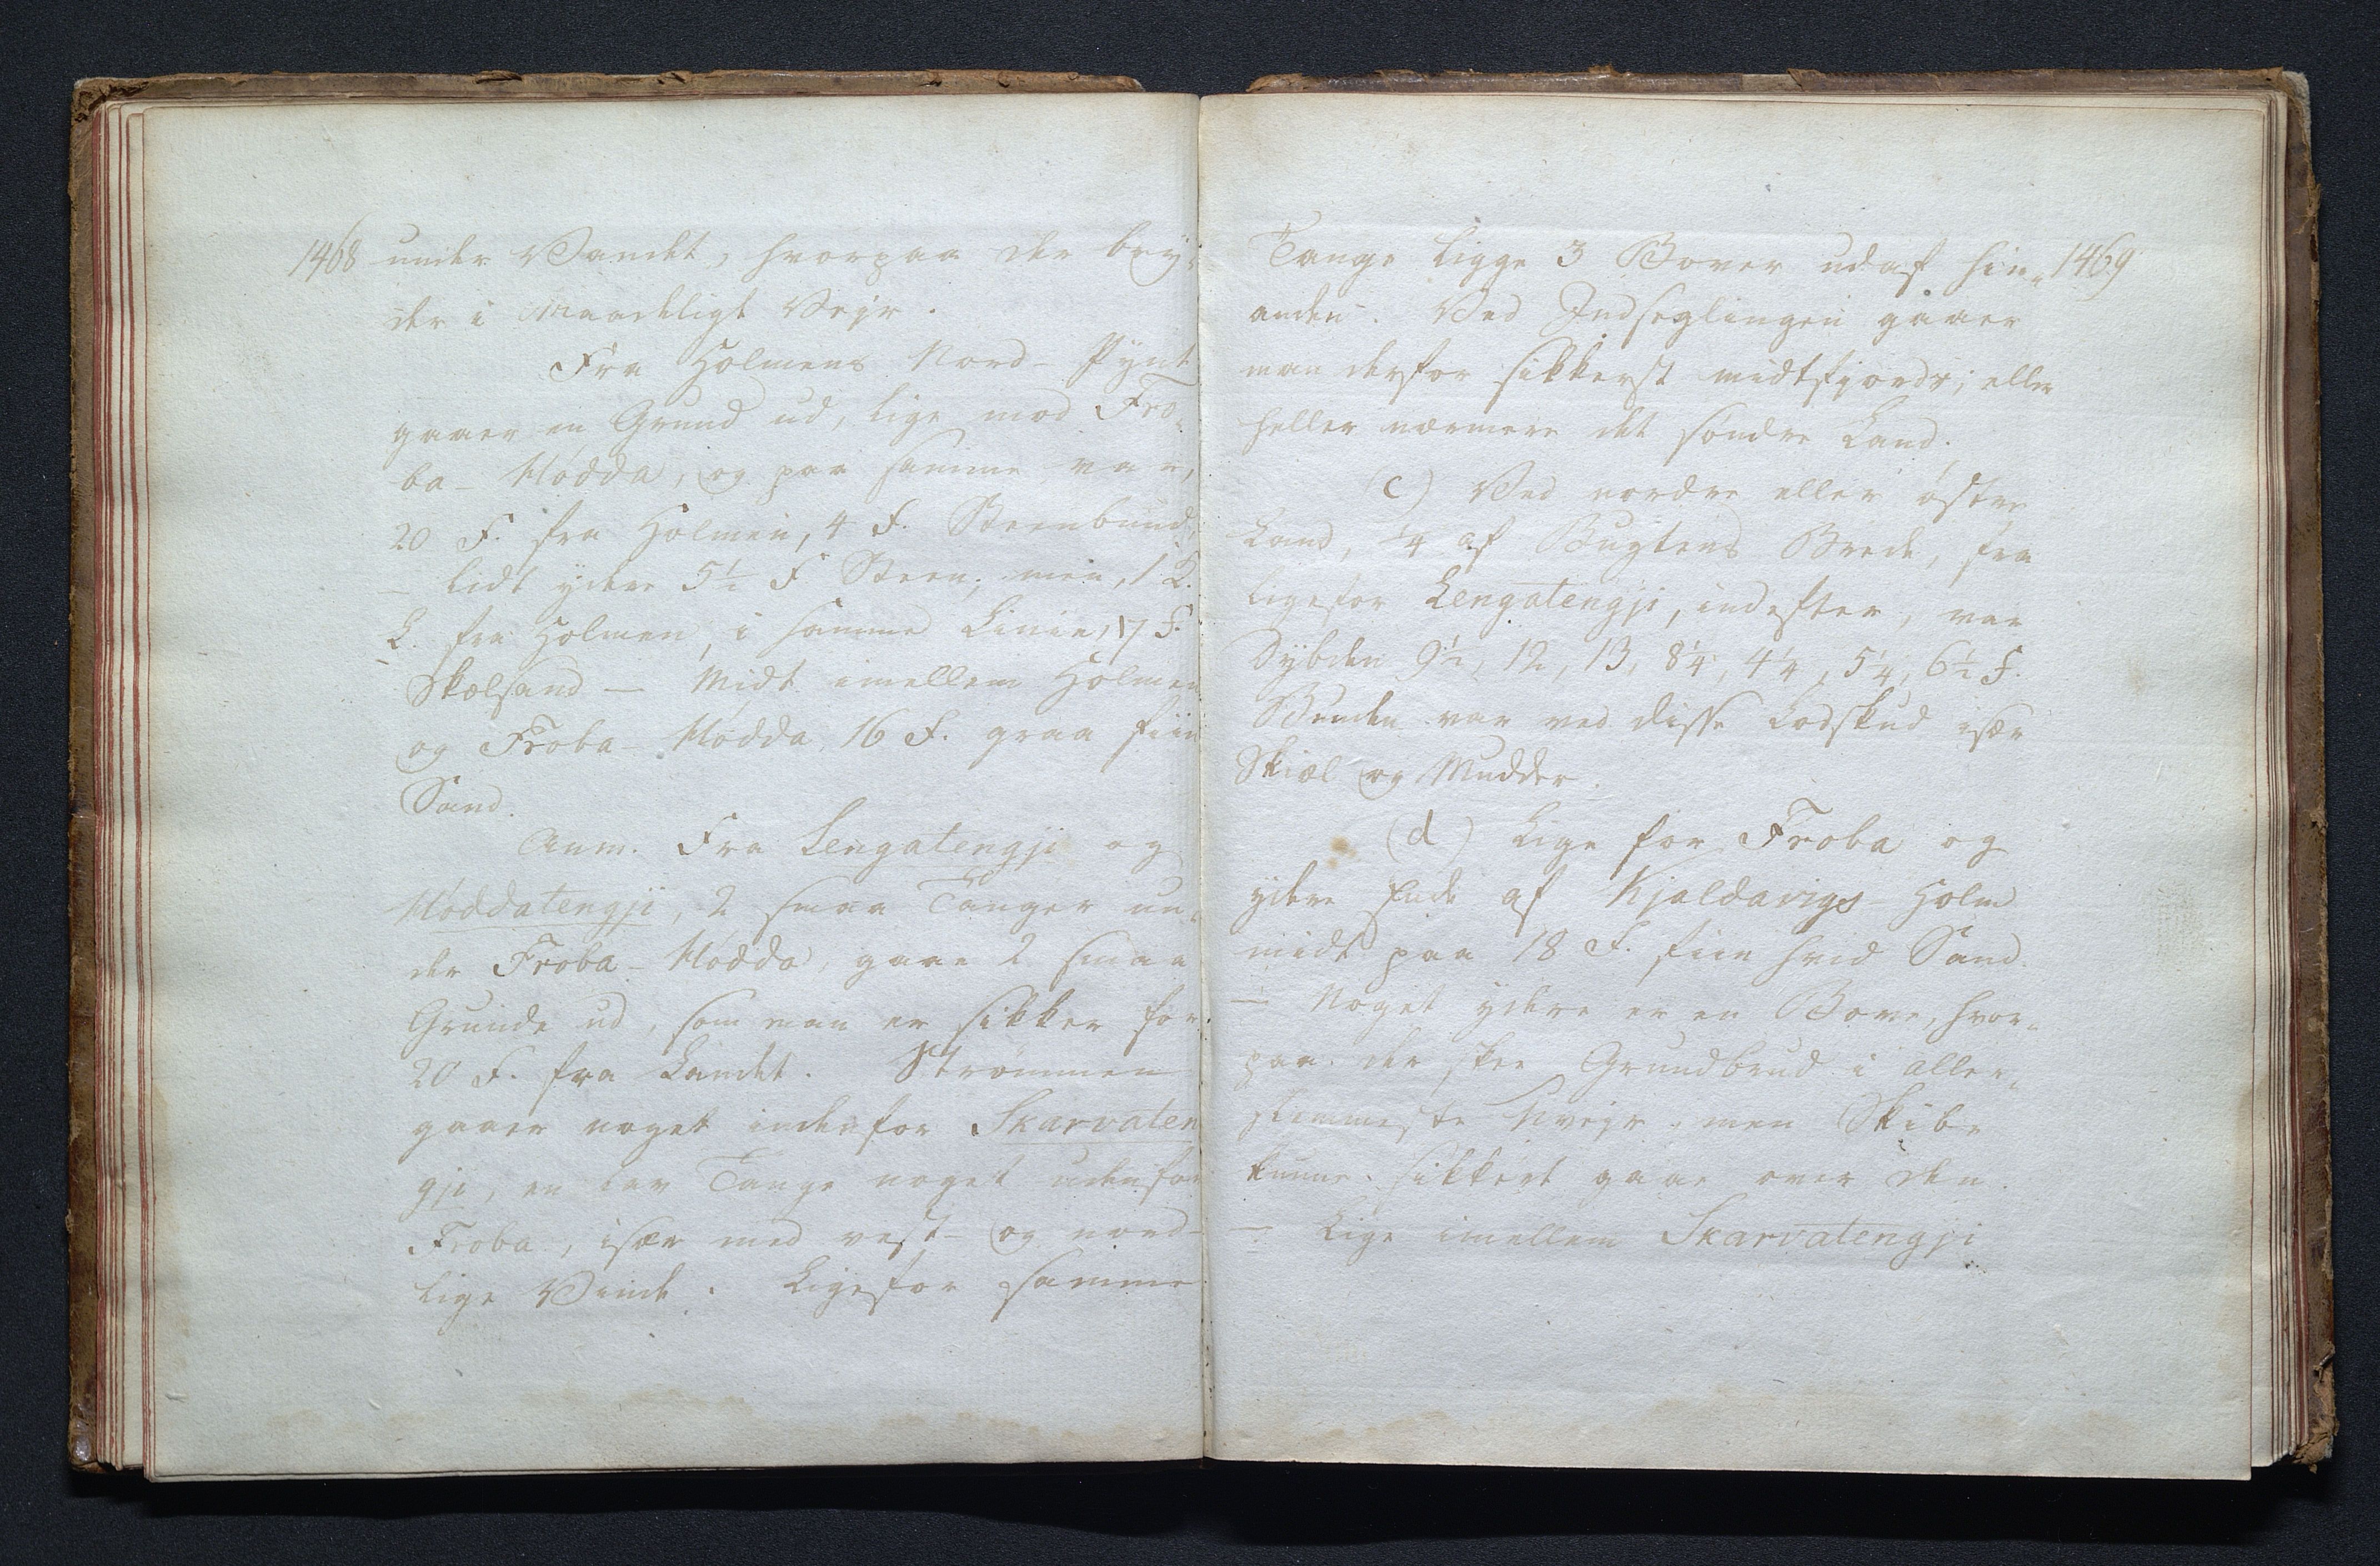 1468 under Vandet, hvorpaa der bry-
der i maadeligt Vejr.
Fra Holmens Nord-Pynt
gaaer en Grund ud, lige mod Fro-
ba-Hódda, og paa samme var,
20 F. fra Holmen, 4 F. Steenbund,
— lidt ydere 5½ F Steen; men, 1 K.
L. fra Holmen, i samme Linie, 17 F.
Skælsand — Midt imellem Holmen
og Froba-Hódda, 16 F. graa fiin
Sand.
Anm. Fra Lengatengji og
Hóddatengji, 2 smaa Tanger un-
der Froba-Hódda, gaae 2 smaa
Grunde ud, som man er sikker for
20 F. fra Landet. Strömmen
gaaer noget indenfor Skarvaten
gji, en lav Tange noget udenfor
Froba, især med vest- og nord-
lige Vinde. Ligefor samme
Tange ligge 3 Bover udaf hin- 1469
anden. Ved Indseglingen gaaer
man derfor sikkerst midtfjords; eller
heller nærmere det söndre Land.
(c) Ved nordre eller östre
Land, ¼ af Bugtens Brede, fra
ligefor Lengatengji, indefter, var
Dybden 9½, 12, 13, 8¼, 4¼, 5¼, 6½ F.
Bunden var ved disse Lodskud især
Skiæl og Mudder.
(d) Lige for Froba og
ydere Ende af Kjaldavigs-Holm
midt paa 18 F. fiin hvid Sand.
— Noget ydere er en Bove, hvor-
paa der skee Grundbrud i aller-
slemmeste Uvejr, men Skibe
kunne sikkert gaae over den.
— Lige imellem Skarvatengji